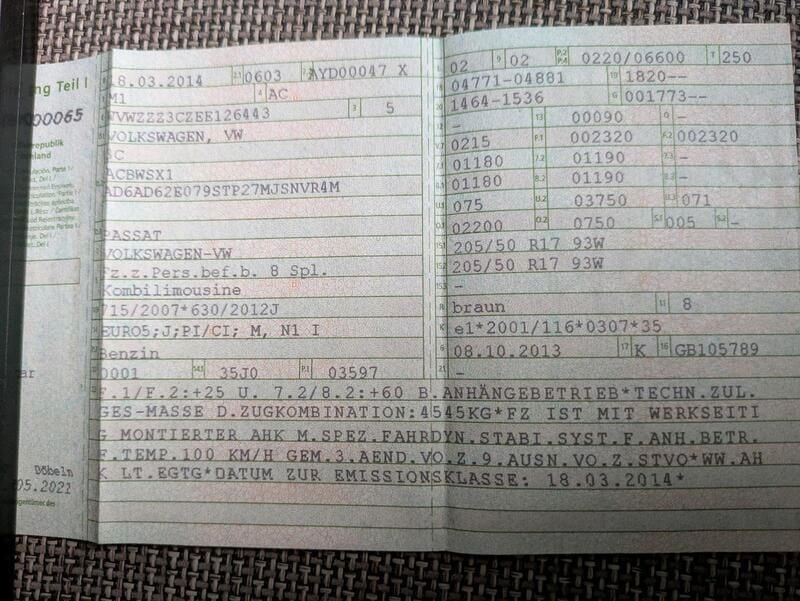 ng Teil I
000065
republik
Döbeln
05.2021
18.03.2014 0603 AYD00047 X
M1 AC
WVWZZZ3CZEE126443 5
VOLKSWAGEN, VW
3C
ACBWSX1
AD6AD62E079STP27MJSNVR4M
PASSAT
VOLKSWAGEN-VW
Fz.z.Pers.bef.b. 8 Spl.
Kombilimousine
715/2007*630/2012J
EURO5;J;PI/CI; M, N1 I
Benzin
0001 14.1 35J0 P.1 03597
02 9 02 P.2 P.4 0220/06600 T 250
04771-04881 1820--
1464-1536 G 001773--
- 13 00090 Q -
V.7 0215 F.1 002320 F.2 002320
01180 7.2 01190 7.3 -
01180 8.2 01190 8.3 -
U.1 075 U.2 03750 U.3 071
O.1 02200 O.2 0750 S.1 005 S.2 -
15.1 205/50 R17 93W
15.2 205/50 R17 93W
15.3 -
R braun 11 8
K e1*2001/116*0307*35
6 08.10.2013 17 K 16 GB105789
21 -
F.1/F.2:+25 U. 7.2/8.2:+60 B.ANHÄNGEBETRIEB*TECHN.ZUL.
GES-MASSE D.ZUGKOMBINATION:4545KG*FZ IST MIT WERKSEITI
G MONTIERTER AHK M.SPEZ.FAHRDYN.STABI.SYST.F.ANH.BETR.
F.TEMP.100 KM/H GEM.3.AEND.VO.Z.9.AUSN.VO.Z.STVO*WW.AH
K LT.EGTG*DATUM ZUR EMISSIONSKLASSE: 18.03.2014*